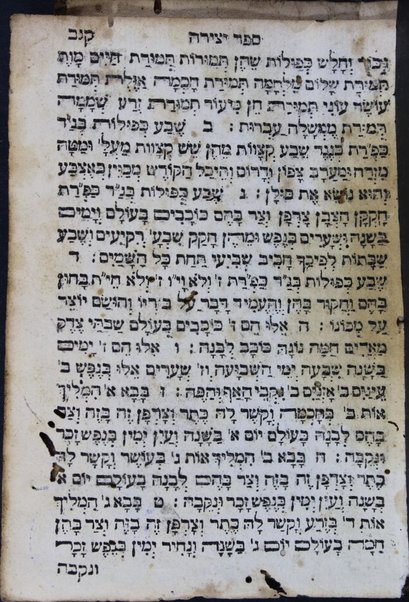 ספר יצירה קנב
וחלש כפולות שהן תמורות תמורת חיים מות
תמורת שלום מלחמה תמורת חכמה אולת תמורת
עושר עוני תמורת חן כיעור תמורת זרע שממה
תמורת ממשלה עבדות : ב שבע כפולות בג״ד
כפ״רת כנגד שבע קצוות מהן שש קצוות מעל׳ ומטה
מזרח ומערב צפון ודרום והיכל הקודש מכוון באמצע
והוא נושא את כולן : ג שבע כפולות בג״ד כפ״רת
חקקן חצבן צרפן וצר בהם כוכבים בעולם וימים
בשנה ושערים בנפש ומהן חקק שבע׳ רקיעים ושבע
שבתות לפיכך חביב שביעי תחת כל השמים : ד
שבע כפולות בג״ד כפ״רת ז׳ ולא וי״ו ז׳ ולא חי״ת בחון
בהם וחקור בהן והעמיד דיבר על בוריו והושם יוצר
על מכונו : ה אלו הם ז׳ כוכבים בעולם שבתי צדק
מאדים חמה נוגה כוכב לבנה : ו אלו הם ז׳ ימים
בשנה שבעה ימי השבוע וז׳ שערים אלו בנפש ב׳
עינים ב׳ אזנים ב׳ נקבי האף והפה : ז בבא א׳ המליך
אות ב׳ בחכמה וקשר לה כתר וצרפן זה בזה וצר
בהם לבנה בעולם יום א׳ בשנה ועין ימין בנפש זכר
ונקבה : ח בבא ב׳ המליך אות ג׳ בעושר וקשר לה
כתר וצרפן זה בזה וצר בהם לבנה בעולם יום א׳
בשנה ועין ימין בנפש זכר ונקבה : ט בבא ג׳ המליך
אות ד׳ בזרע וקשר לה כתר וצרפן זה בזה וצר בהן
חמה בעולם יום ג׳ בשנה ונחיר ימין בנפש זכר
ונקבה